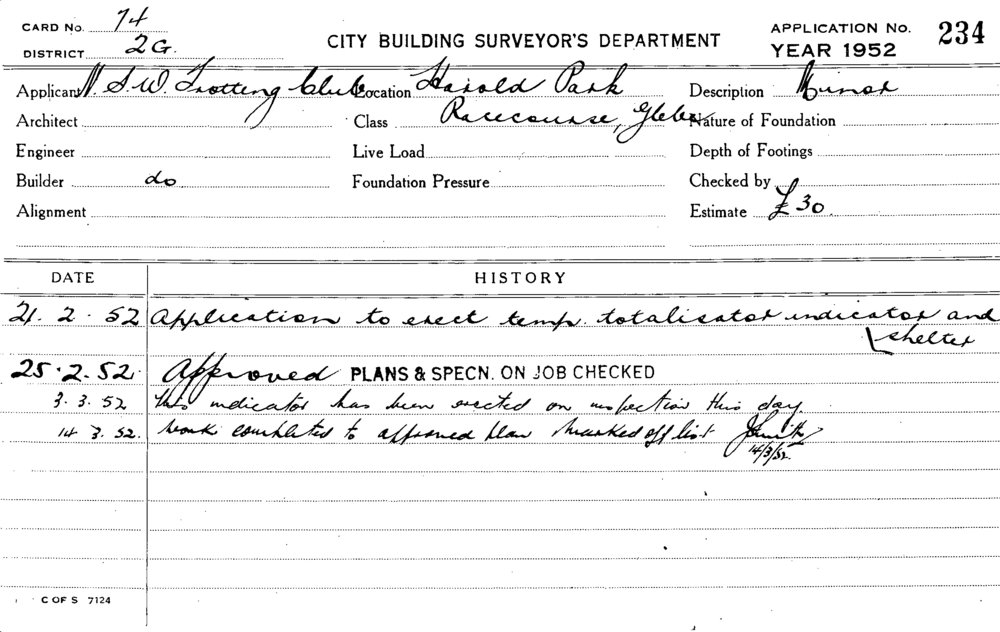 CARD No. 74
DISTRICT 2G.
CITY BUILDING SURVEYOR'S DEPARTMENT
APPLICATION No. 234
YEAR 1952
Applicant N.S.W. Trotting Club Location Harold Park Description Minor
Architect Class Racecourse, Glebe Nature of Foundation
Engineer Live Load Depth of Footings
Builder do Foundation Pressure Checked by
Alignment Estimate £30
DATE HISTORY
21. 2. 52 Application to erect temp. totalisator indicator and
shelter
25.2.52. Approved PLANS & SPECN. ON JOB CHECKED
3. 3. 52 this indicator has been erected on inspection this day.
14 3. 52. Work completed to approved plan Marked off list
14/3/52
C OF S 7124